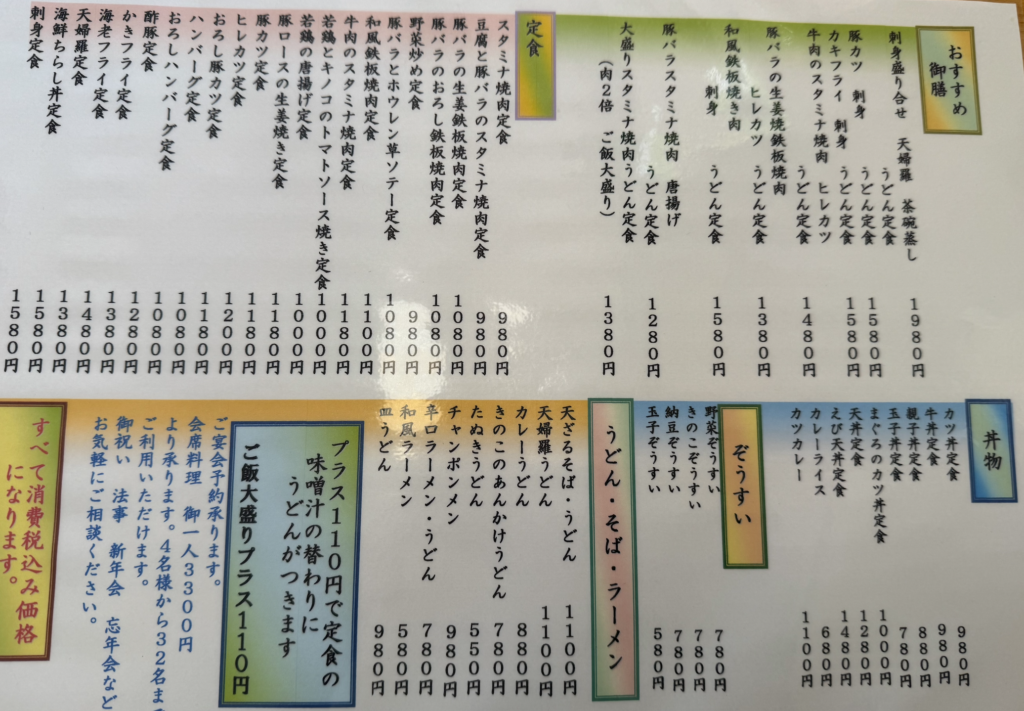 おすすめ
御膳
刺身盛り合せ 天婦羅 茶碗蒸し
うどん定食 1980円
豚カツ 刺身 うどん定食 1580円
カキフライ 刺身 うどん定食 1580円
牛肉のスタミナ焼肉 ヒレカツ
うどん定食 1480円
豚バラの生姜焼鉄板焼肉
ヒレカツ うどん定食 1380円
和風鉄板焼き肉
刺身 うどん定食 1580円
豚バラスタミナ焼肉 唐揚げ
うどん定食 1280円
大盛りスタミナ焼肉うどん定食 1380円
(肉2倍 ご飯大盛り)
定食
スタミナ焼肉定食 980円
豆腐と豚バラのスタミナ焼肉定食 980円
豚バラの生姜鉄板焼肉定食 1080円
豚バラのおろし鉄板焼肉定食 1080円
野菜炒め定食 980円
豚バラとホウレン草ソテー定食
和風鉄板焼肉定食 1100円
牛肉のスタミナ焼肉定食 1180円
若鶏とキノコのトマトソース焼き定食 1000円
若鶏の唐揚げ定食 1000円
豚ロースの生姜焼き定食 1180円
豚カツ定食 1180円
ヒレカツ定食 1200円
おろし豚カツ定食 1180円
ハンバーグ定食 1080円
おろしハンバーグ定食 1080円
酢豚定食 1280円
かきフライ定食 1380円
海老フライ定食 1480円
天婦羅定食 1380円
海鮮ちらし丼定食 1580円
刺身定食 1580円
丼物
カツ丼定食 980円
牛丼定食 980円
親子丼定食 880円
玉子丼定食 780円
まぐろのカツ丼定食 1000円
天丼定食 1280円
えび天丼定食 1480円
カレーライス 680円
カツカレー 1100円
ぞうすい
野菜ぞうすい 780円
きのこぞうすい 780円
納豆ぞうすい 780円
玉子ぞうすい 580円
うどん・そば・ラーメン
天ざるそば・うどん 1100円
天婦羅うどん 1100円
カレーうどん 880円
きのこのあんかけうどん 780円
たぬきうどん 550円
チャンポンメン 980円
辛口ラーメン・うどん 780円
和風ラーメン 580円
皿うどん 980円
プラス110円で定食の
味噌汁の替わりに
うどんがつきます
ご飯大盛りプラス110円
ご宴会予約承ります。
会席料理 御一人3300円
より承ります。4名様から32名ま
ご利用いただけます。
御祝い 法事 新年会 忘年会など
お気軽にご相談ください。
すべて消費税込み価格
になります。